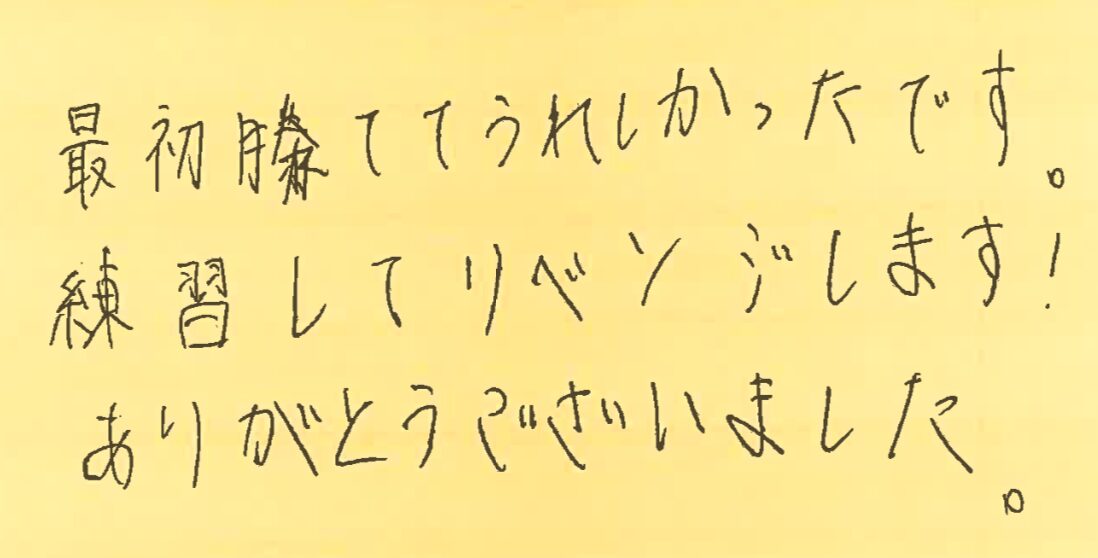 最初勝ててうれしかったです。
練習してリベンジします!
ありがとうございました。